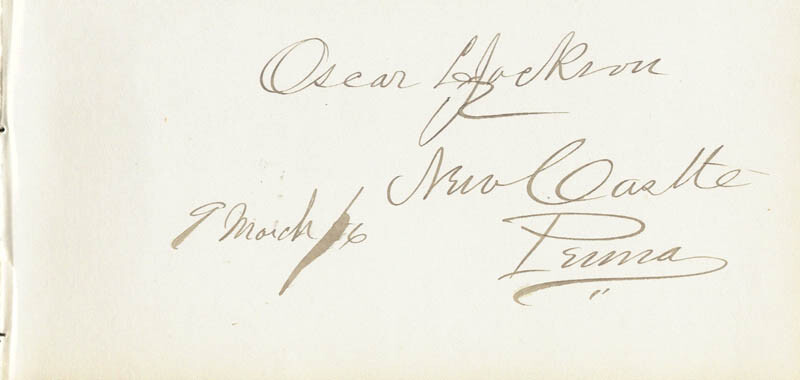 Oscar L Jackson
New Castle
Penna
9 March /86